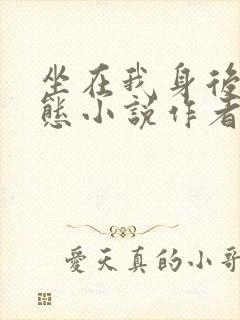 坐在我身後
態小說作者
愛天真的小哥